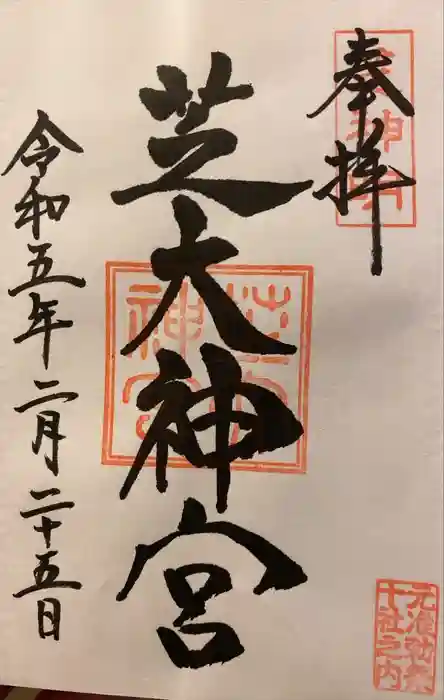 奉拝
芝大神宮
令和五年二月二十五日
元准勅祭
十社之内